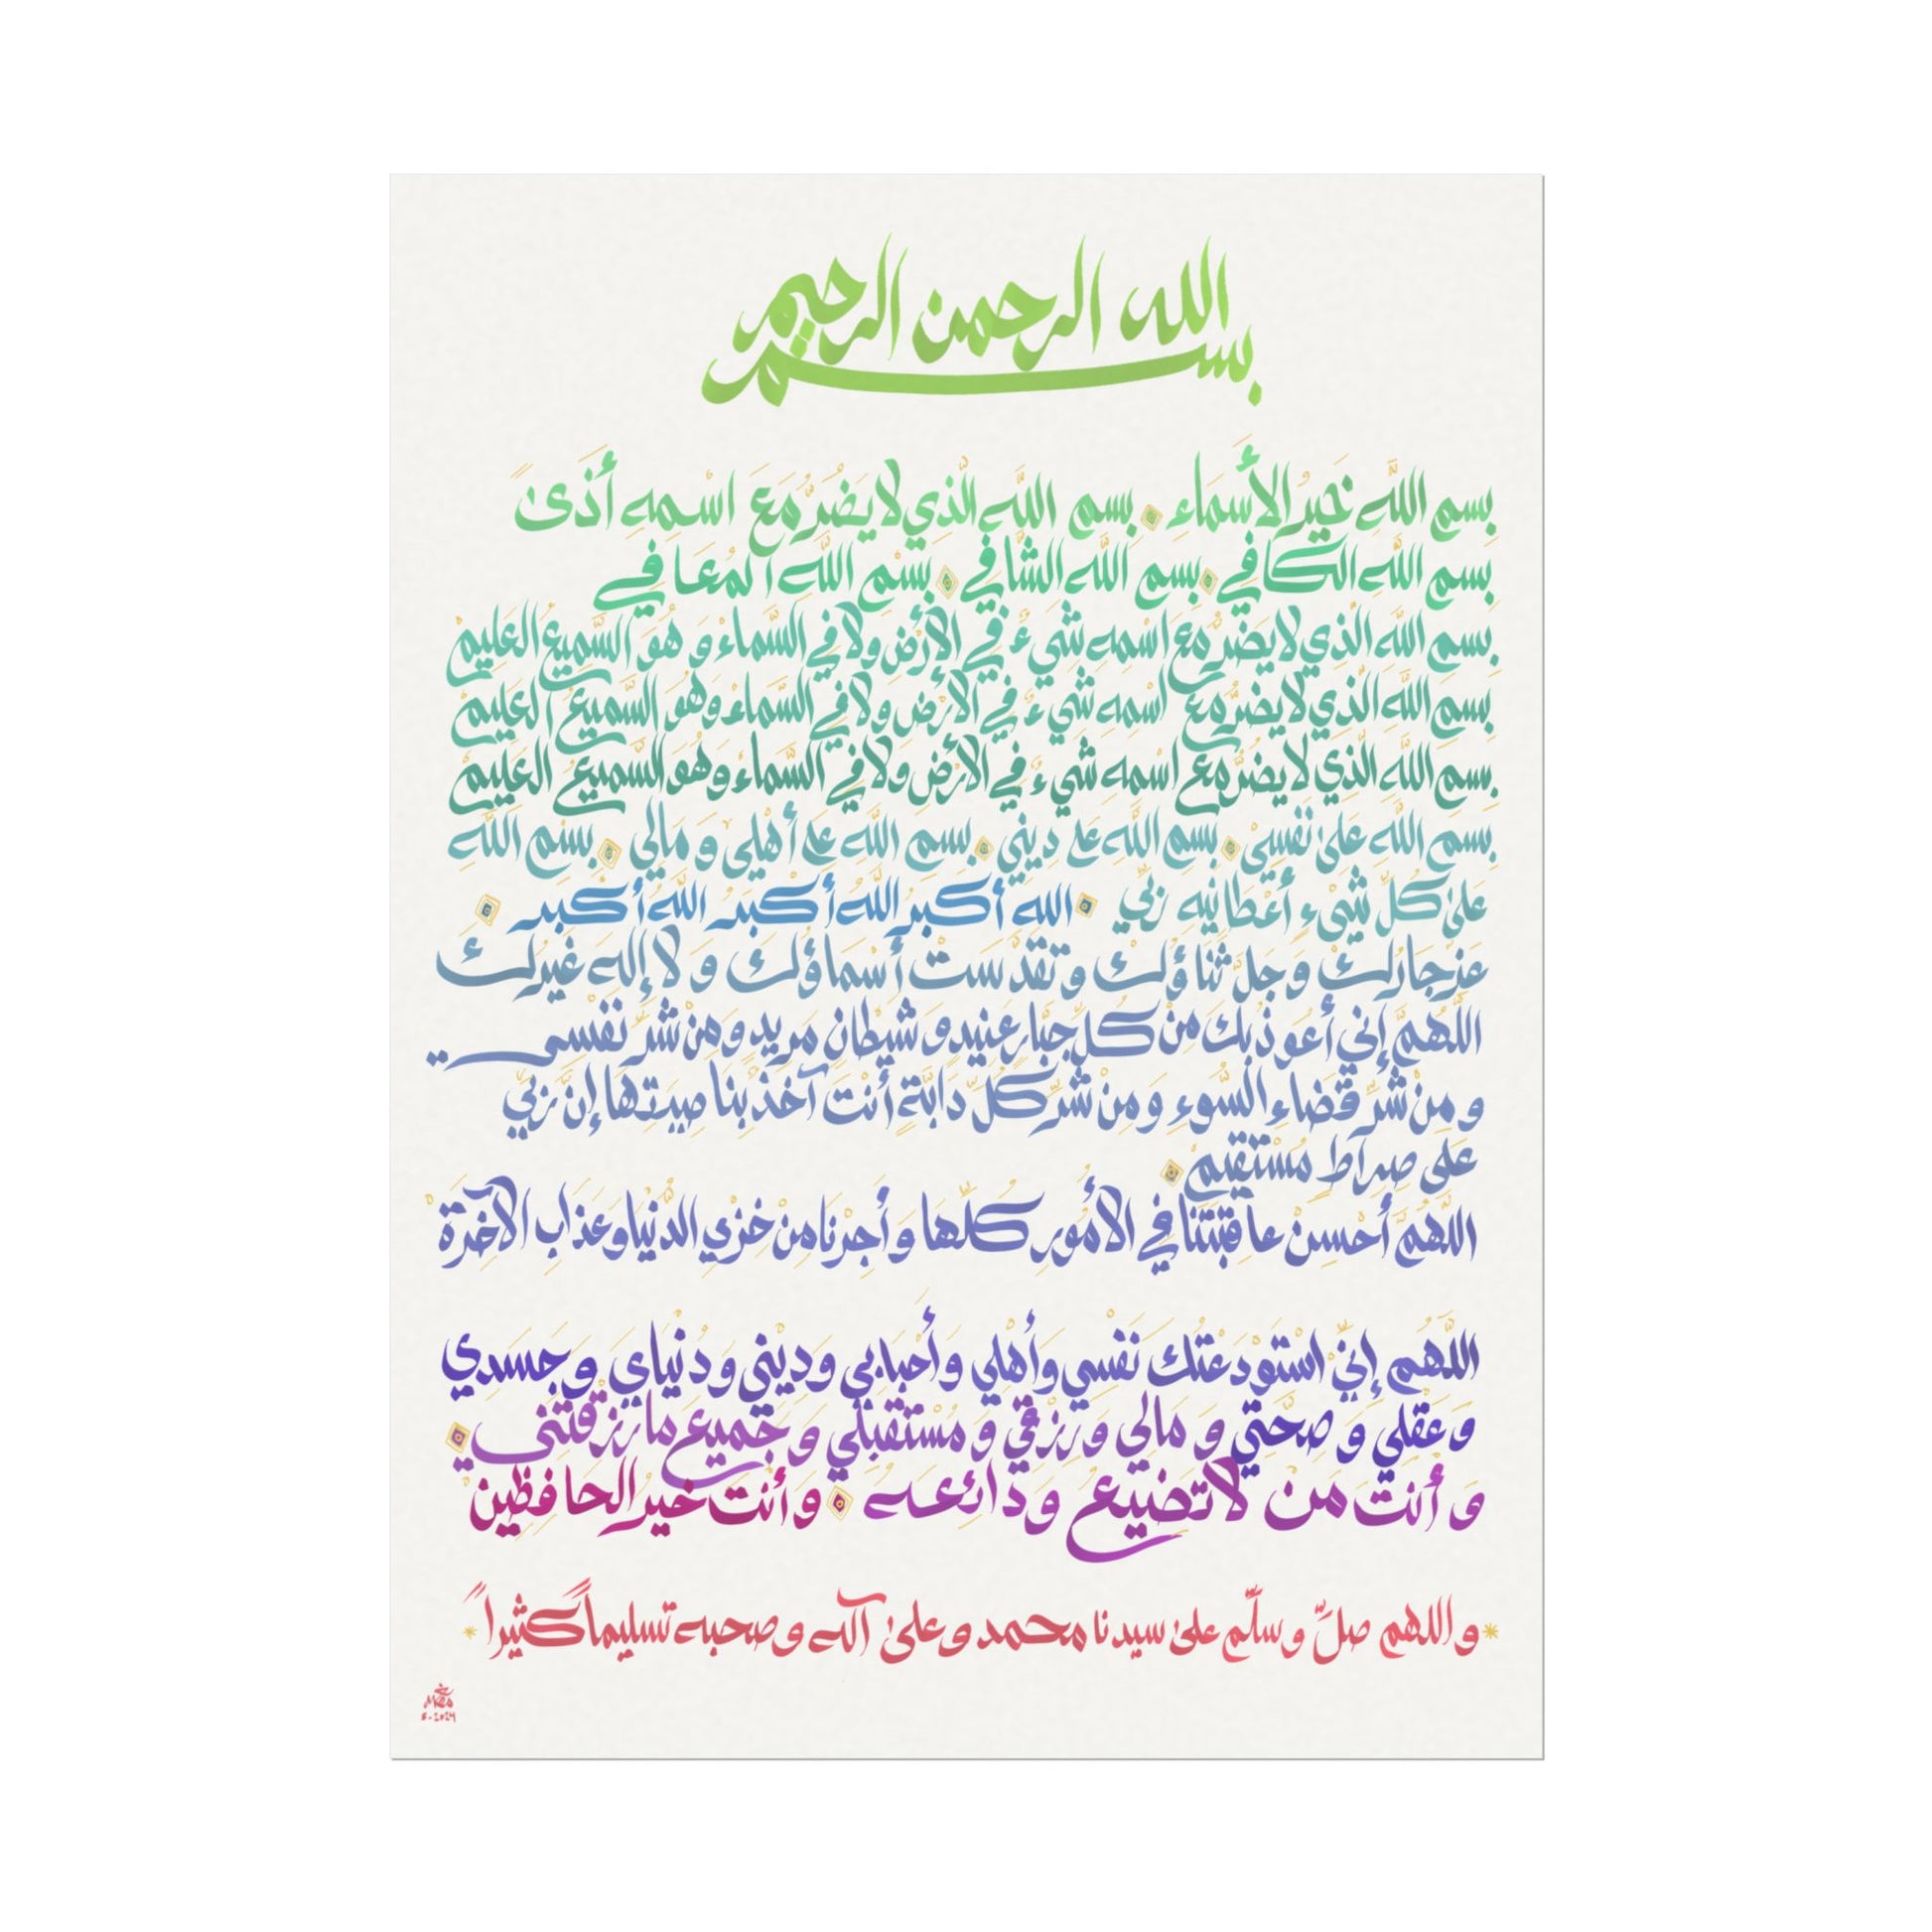 بسم الله الرحمن الرحيم
بسم الله خَير الأسمَاء بسم الله الّذي لا يَضُرّ مَعَ اسْمه أَذىً
بسم الله الكافي بسم الله الشافي بسم الله المعافي
بسم الله الذي لا يضر مع اسمه شيء في الأرض ولا في السماء و هو السميع العليم
بسم الله الذي لا يضر مع اسمه شيء في الأرض ولا في السماء وهو السميع العليم
بسم الله الذي لا يضر مع اسمه شيء في الأرض ولا في السماء وهو السميع العليم
بسم الله على نفسي بسم الله على ديني بسم الله على أهلي و مالي بسم الله
على كل شيء أعطانيه ربي الله أكبر الله أكبر الله أكبر
عز جارك وجل ثناؤك وتقدست أسماؤك و لا إله غيرك
اللهم إني أعوذ بك من كل جبار عنيد و شيطان مريد و من شر نفسي
و من شر قضاء السوء و من شر كل دابة أنت آخذ بناصيتها إن ربي
على صراط مستقيم
اللهم أحسن عاقبتنا في الأمور كلها و أجرنا من خزي الدنيا وعذاب الآخرة
اللهم إني استودعتك نفسي وأهلي وأحبابي وديني ودنياي وجسدي
وعقلي و صحتي و مالي و رزقي و مستقبلي و جميع ما رزقتني
و أنت من لا تضيع ودائعه وأنت خير الحافظين
و اللهم صلّ وسلّم على سيدنا محمد وعلى آله وصحبه تسليماً كثيراً
8-2024